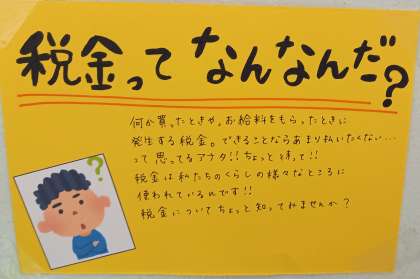 税金って なんなんだ?
何か買ったときや、お給料をもらったときに
発生する税金。できることならあまり払いたくない…
って思ってるアナタ!!ちょっと待って!!
税金は私たちのくらしの様々なところに
使われているのです!!
税金についてちょっと知ってみませんか?